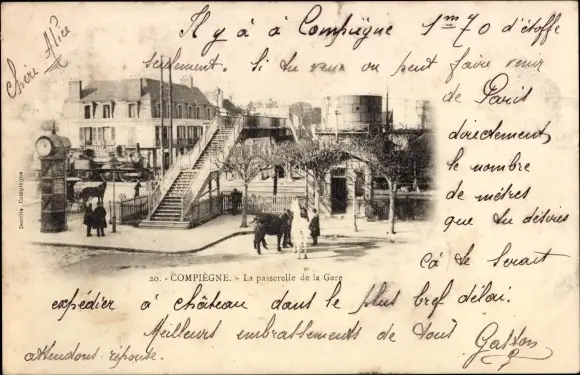 Chère Alice
Il y a à Compiègne 1m70 d'étoffe
seulement. Si tu veux on peut faire venir
de Paris
directement
le nombre
de mètres
que tu désires
Ça te serait
expédier à château dans le plus bref délai.
Meilleurs embrassements de tous
attendons réponse.
Gaston
20. - COMPIÈGNE. - La passerelle de la Gare
Compiègne